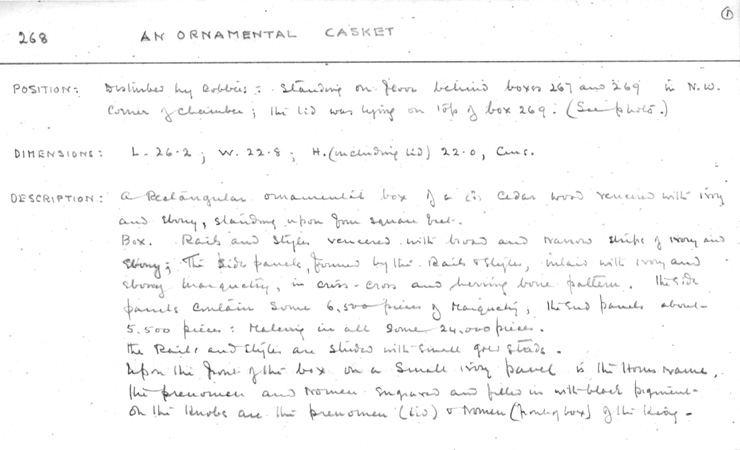 ①
268 AN ORNAMENTAL CASKET
POSITION: Disturbed by robbers: Standing on floor behind boxes 267 and 269 in N.W.
Corner of Chamber; the lid was lying on top of box 269. (See photo.)
DIMENSIONS: L. 26·2; W. 22·8; H. (including lid) 22·0, Cms.
DESCRIPTION: A Rectangular ornamental box of a Cedar wood veneered with ivory
and ebony, standing upon four square feet.
Box. Rails and Styles veneered with broad and narrow strips of ivory and
ebony; The side panels, formed by the Rails & Styles, inlaid with ivory and
ebony marquetry, in criss-cross and herring bone pattern. The side
panels contain some 6,500 pieces of Marquetry; the end panels about
5.500 pieces: Making in all some 24,000 pieces.
the Rails and Styles are studed with small gold studs.
Upon the front of the box on a small ivory panel is the Horus Name,
the prenomen and Nomen engraved and filled in with black pigment.
On the Knobs are the prenomen (lid) & Nomen (front of box) of the King.